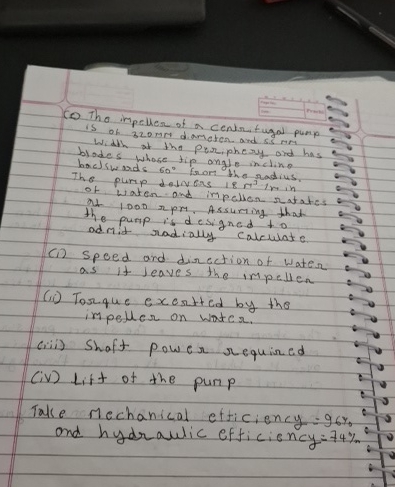 (c) The impeller of a centrifugal pump
is of 320mm diameter and 55 mm
width at the periphery, and has
blades whose tip angle incline
backwards 60° from the radius.
The pump delivers 18 m³/min
of water and impeller rotates
at 1000 rpm, Assuming that
the pump is designed to
admit radially calculate
(i) speed and direction of water
as it leaves the impeller
(ii) Torque exertted by the
impeller on water.
(iii) Shaft power required
(iv) Lift of the pump
Take Mechanical efficiency = 96%
and hydraulic efficiency = 74%